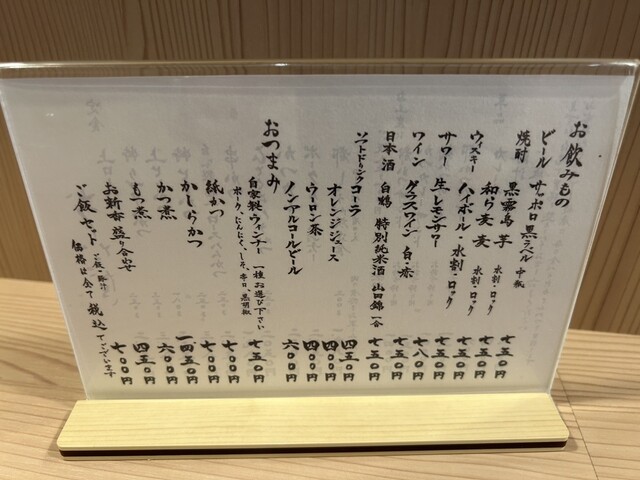 お飲みもの
ビール サッポロ黒ラベル 中瓶 七五〇円
焼酎 黒霧島 芋 水割・ロック 七五〇円
和ら麦 麦 水割・ロック 七五〇円
ウィスキー ハイボール・水割・ロック 七五〇円
サワー 生レモンサワー 七八〇円
ワイン グラスワイン 白・赤 七五〇円
日本酒 白鶴 特別純米酒 山田錦 一合 七五〇円
ソフトドリンク コーラ 四五〇円
オレンジジュース 四〇〇円
ウーロン茶 四〇〇円
ノンアルコールビール 六〇〇円
おつまみ
自家製ウィンナー 一種お選び下さい 七五〇円
ポーク、にんにく、しそ、辛口、黒胡椒
紙かつ 七〇〇円
かしらかつ 七〇〇円
かつ煮 一、四五〇円
もつ煮 六〇〇円
お新香盛り合せ 四五〇円
ご飯セット ご飯・豚汁 七〇〇円
価格は全て税込でございます